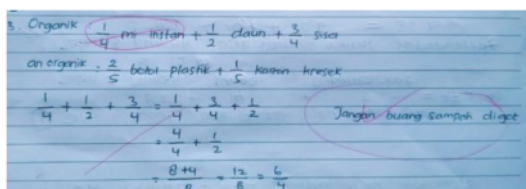 3. Organik 1/4 mi instan + 1/2 daun + 3/4 sisa
an organik : 2/5 botol plastik + 1/5 kresek
1/4 + 1/2 + 3/4 = 1/4 + 3/4 + 1/2
Jangan buang sampah digot
= 4/4 + 1/2
= 8+4/8 = 12/8 = 6/4